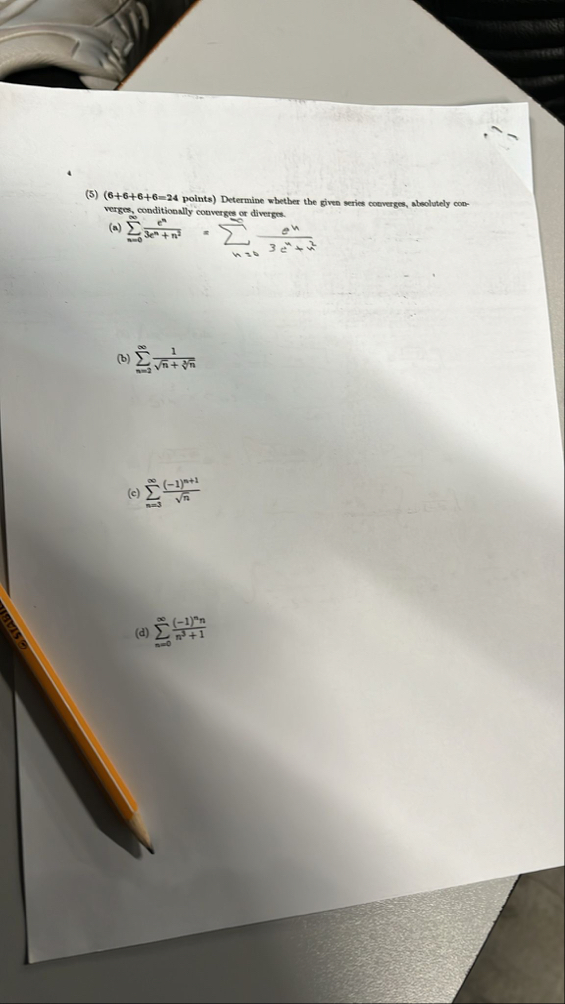 (5) (6+6+6+6=24 points) Determine whether the given series converges, absolutely con-
verges, conditionally converges or diverges.
(a) ∑_{n=0}^{∞} e^n / (3e^n + n^2) = ∑_{n=0}^{∞} e^n / (3e^n + n^2)
(b) ∑_{n=2}^{∞} 1 / (√n + ∛n)
(c) ∑_{n=3}^{∞} (-1)^{n+1} / √n
(d) ∑_{n=0}^{∞} (-1)^n n / (n^3 + 1)